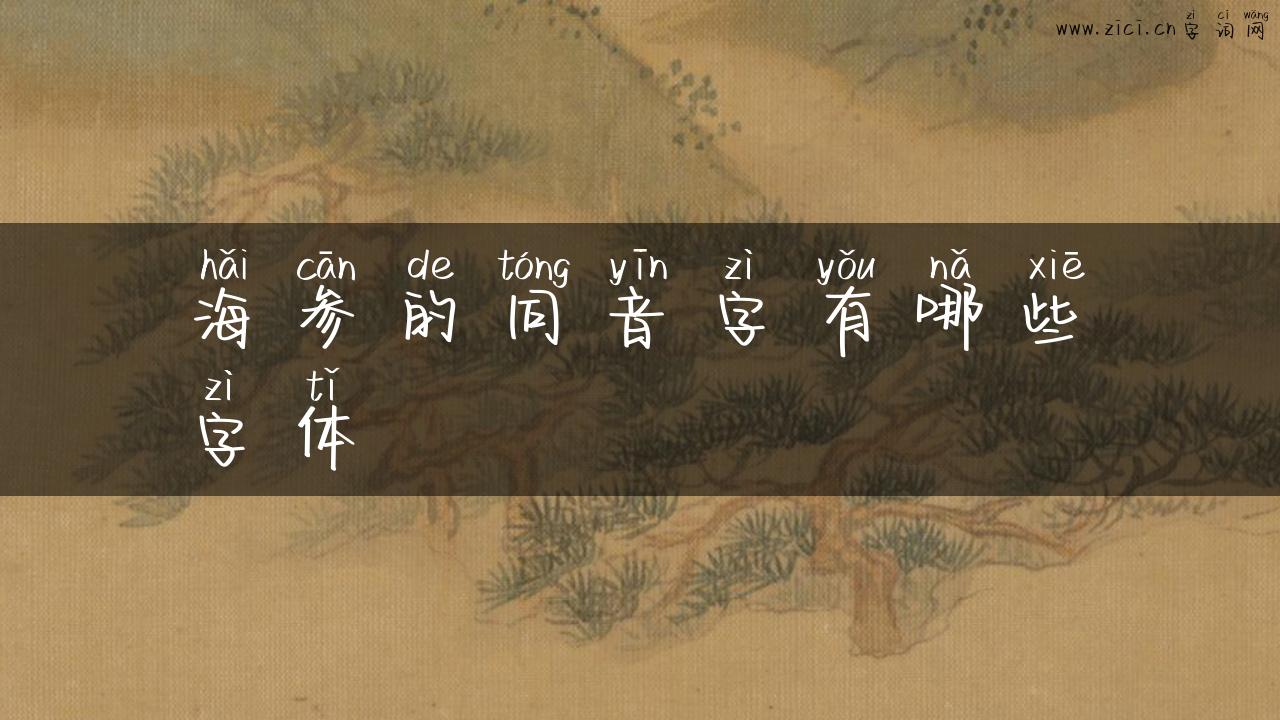 zì cí wǎng
www.zici.cn 字词网
hǎi cān de tóng yīn zì yǒu nǎ xiē
海参的同音字有哪些
zì tǐ
字体